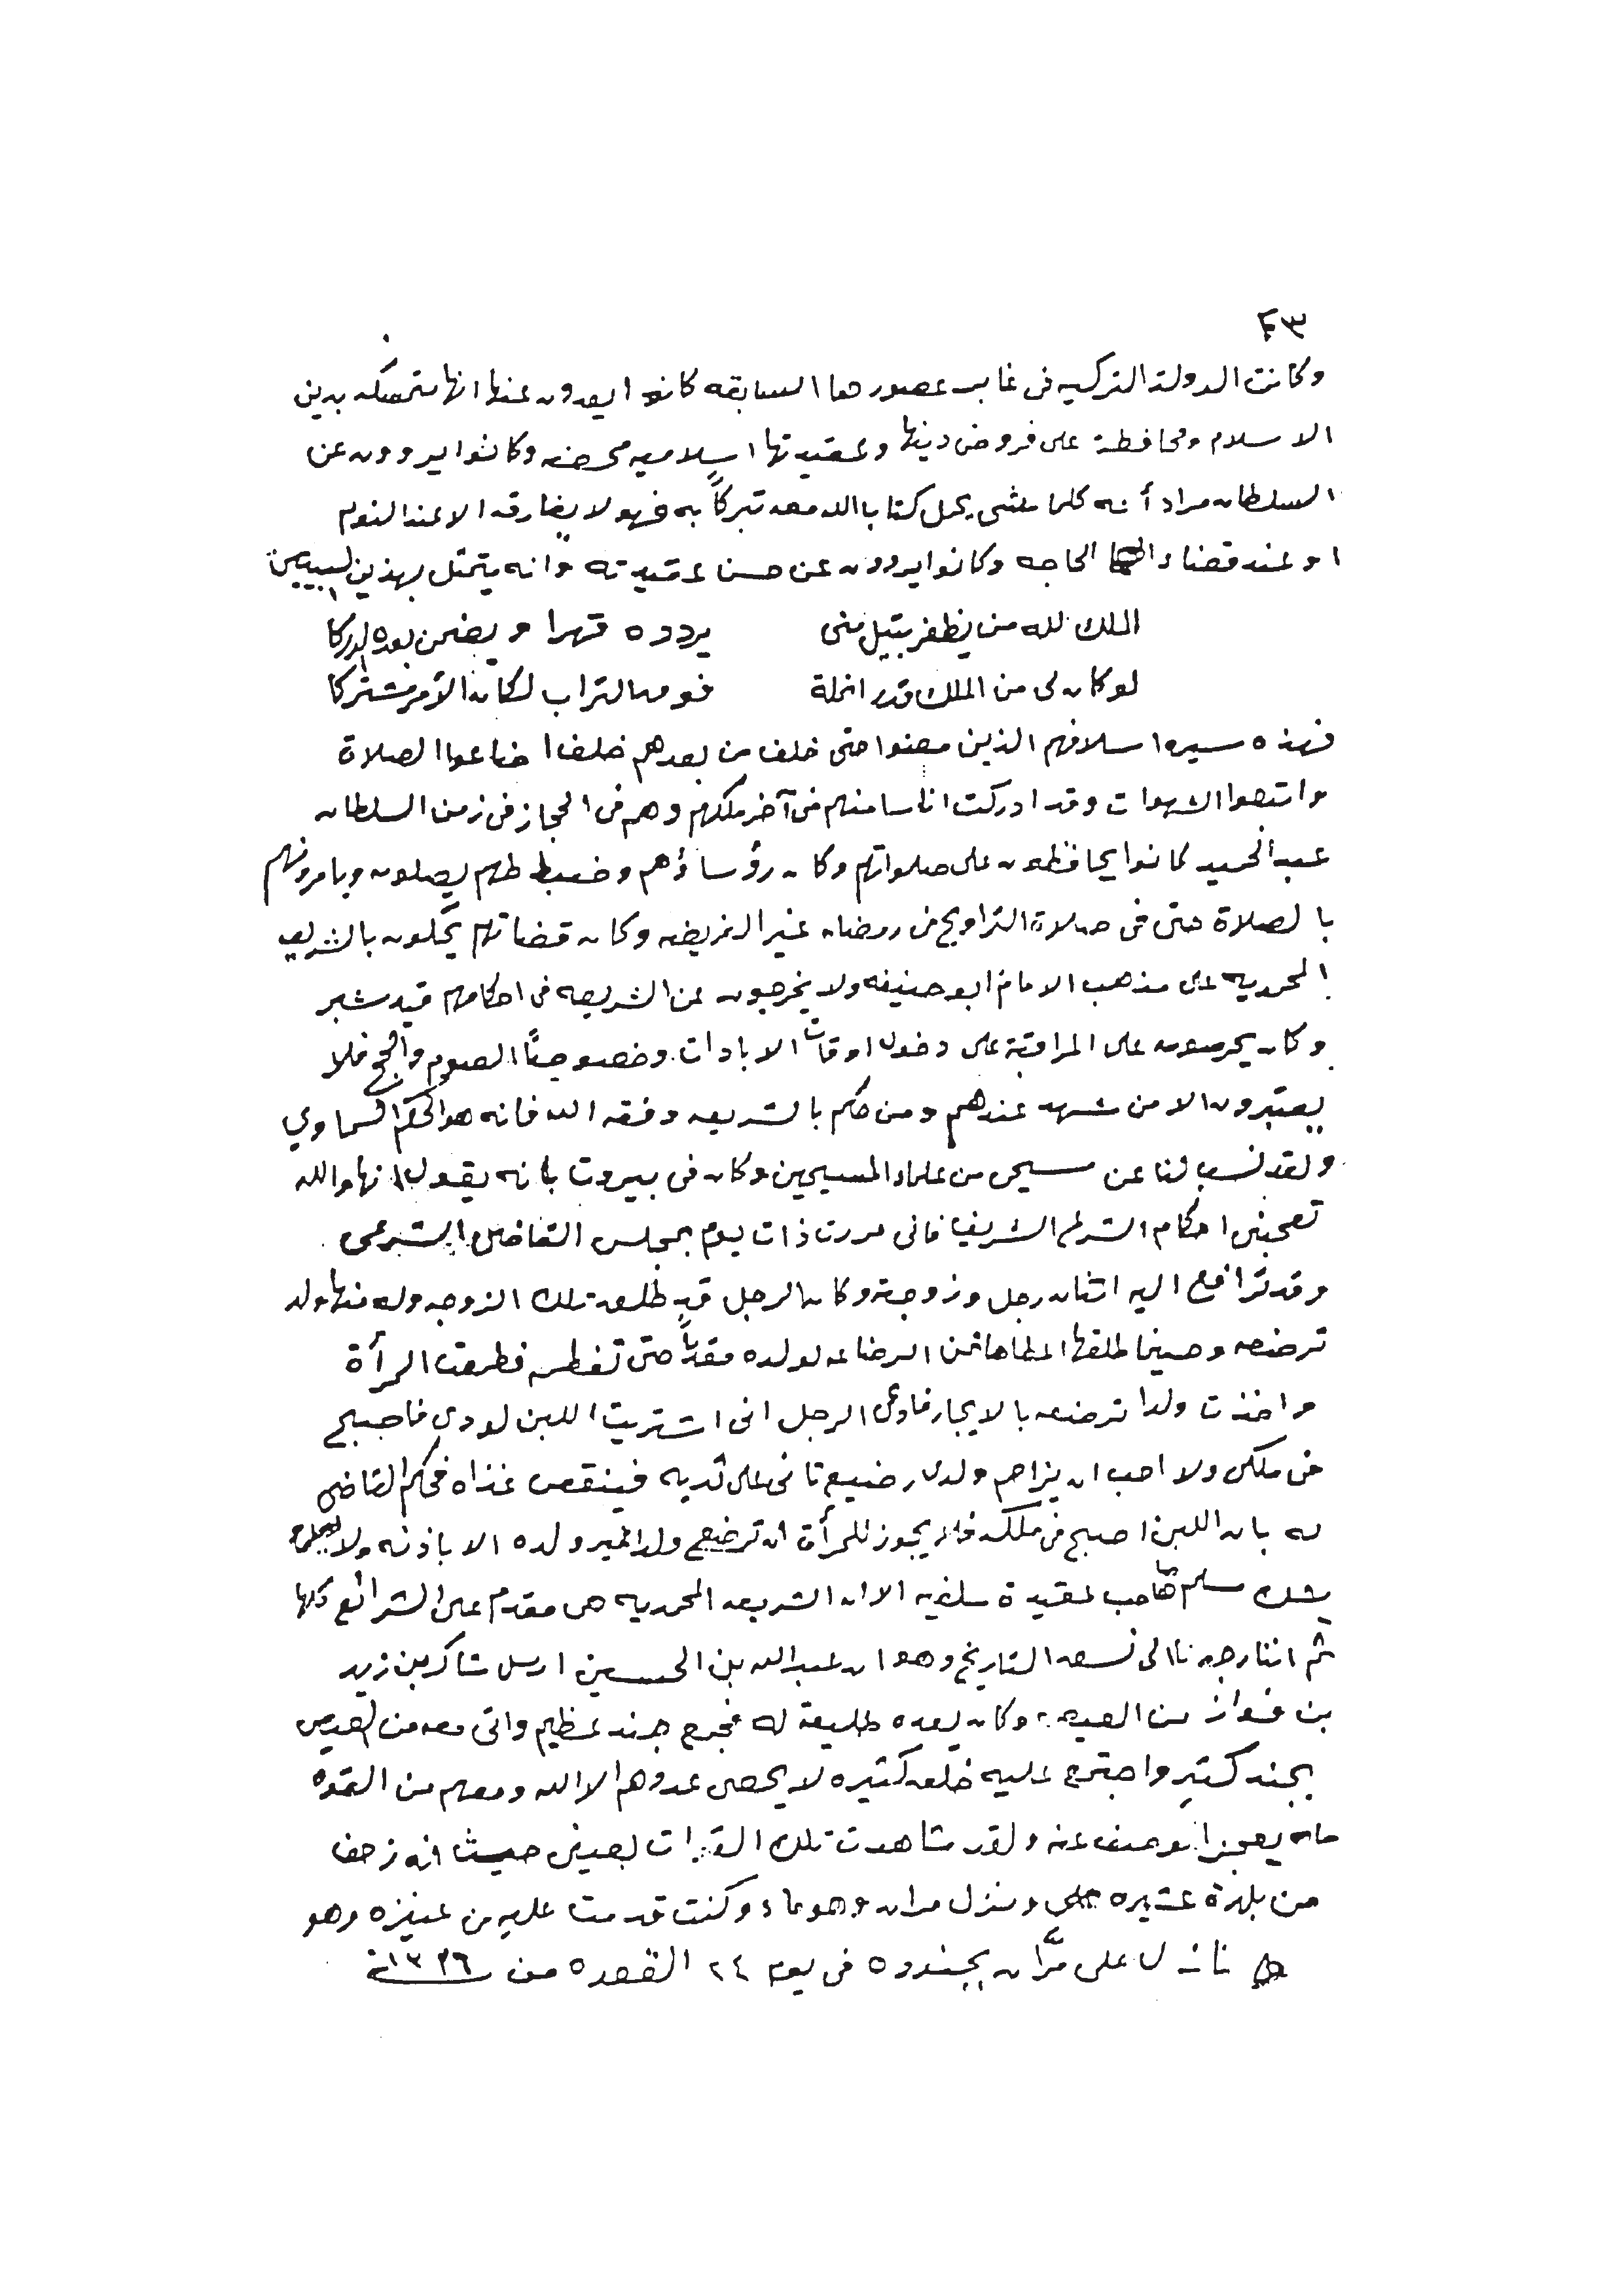 ٤٣
وكانت الدولة التركيه فى غابر عصورها السابقه كانو ايعدون عنها انها متمسكه بدين
الاسلام ومحافظة على فروض دينها وعقيدتها اسلاميه محضه وكانوا يروون عن
السلطان مراد أنه كلما مشى يحمل كتاب الله معه تبركاً به فهو لا يفارقه الا عند النوم
او عند قضاء الحاجه وكانوا يروون عن حسن عقيدته وانه يتمثل بهذين البيتين
الملك لله من يظفر بنيل منى يردده قهرا ويضمن بعده الدركا
لو كان لى من الملك قدر انملة فوق التراب لكان الأمر مشتركا
فهذه سيرة اسلافهم الذين مضوا حتى خلف من بعدهم خلف اضاعوا الصلاة
واتبعوا الشهوات وقد ادركت اناسا منهم فى آخر ملكهم وهم فى الحجاز فى زمن السلطان
عبد الحميد كانوا يحافظون على صلواتهم وكان رؤساؤهم وضباطهم يصلون ويامرونهم
بالصلاة حتى فى صلاة التراويح فى رمضان غير الفريضه وكان قضاتهم يحكمون بالشريعه
المحمديه على مذهب الامام ابو حنيفه ولا يخرجون عن الشريعه فى احكامهم قيد شبر
وكان يحرصون على المراقبة على دخول اوقات الابادات وخصوصاً الصوم والحج فلا
يعتبرون الا من شهد عندهم ومن حكم بالشريعه وفقه الله فانه هو الحكم السماوي
ولقد نسب لنا عن مسيحى من علماء المسيحيين وكان فى بيروت بانه يقول انها والله
تعجبنى احكام الشرع الشريف فانى مررت ذات يوم بمجلس القاضى الشرعى
وقد ترافع اليه اثنان رجل وزوجته وكان الرجل قد طلق تلك الزوجه وله منها ولد
ترضعه وحينما طلقها اعطاها ثمن الرضاعه لولده مقدماً حتى تفطمه فطمعت المرأة
واخذت ولدا ترضعه بالايجار فادعى الرجل انى اشتريت اللبن لولدى فاصبح
فى ملكى ولا احب ان يزاحم ولدى رضيع ثانى على ثديه فينقص غذاه فحكم القاضى
له بان اللبن اصبح فى ملكه فلا يجوز للمرأة ان ترضع ولدا غير ولده الا باذنه ولا
يشك مسلم صاحب عقيدة سلفيه الا ان الشريعه المحمديه هى مقدم على الشرائع كلها
ثم اننا رجعنا الى نسق التاريخ وهو ان عبدالله بن الحسين ارسل شاكر بن زيد
بن فواز من العيص وكان يعده طليعة له فجمع جند عظيم واتى معه من العيص
بجند كثير واجتمع عليه خلق كثيره لا يحصى عددهم الا الله ومعهم من القوه
مايعجز الوصف عنه ولقد شاهدت تلك القوات بعينى حيث انه زحف
من بلدة عشيره ونزل مران وهو ماء وكنت قدمت عليه من عنيزه وهو
نازل على مرّان بجنوده فى يوم ٢٤ القعده من سنة ١٣٣٦